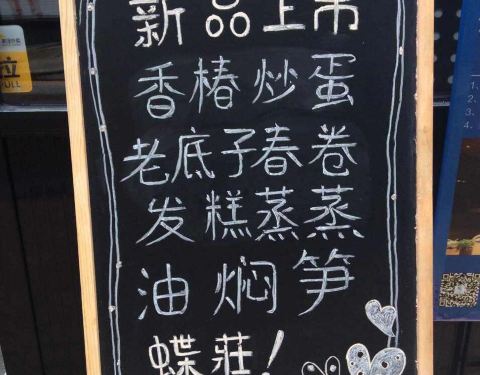 新品上市
香椿炒蛋
老底子春卷
发糕蒸蒸
油焖笋
蝶莊！
拉
PULL